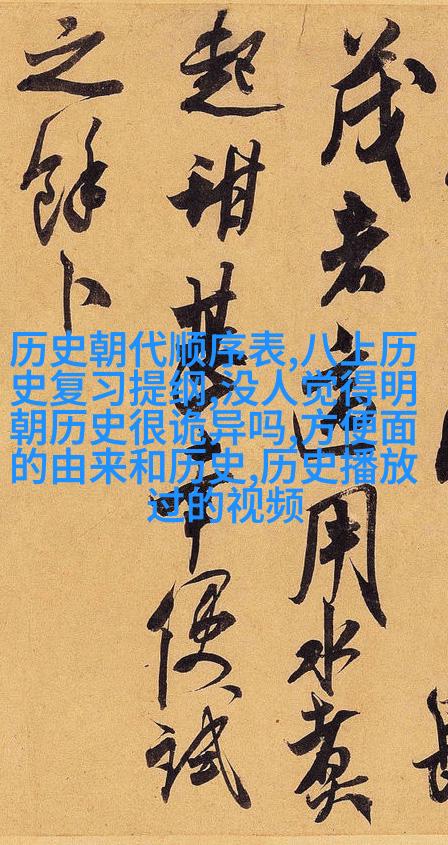 历史朝代顺序表,八上历
史复习提纲,没人觉得明
朝历史很诡异吗,方便面
的由来和历史,历史播放
过的视频
茂者用水煮
起甜甚便試
之餘卜